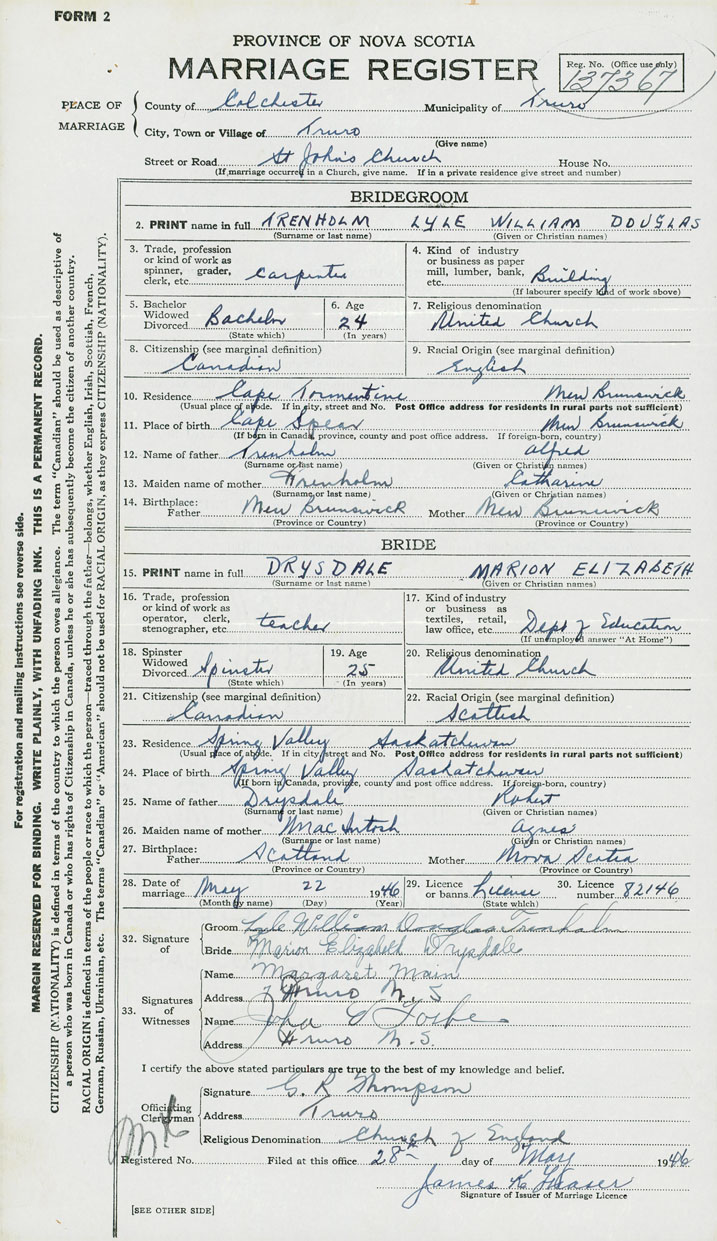 FORM 2
PROVINCE OF NOVA SCOTIA
MARRIAGE REGISTER
Reg. No. (Office use only)
137367
PLACE OF MARRIAGE
County of Colchester Municipality of Truro
City, Town or Village of Truro
(Give name)
Street or Road St John's Church House No.
(If marriage occurred in a Church, give name. If in a private residence give street and number)
BRIDEGROOM
2. PRINT name in full TRENHOLM LYLE WILLIAM DOUGLAS
(Surname or last name) (Given or Christian names)
3. Trade, profession or kind of work as spinner, grader, clerk, etc. Carpenter
4. Kind of industry or business as paper mill, lumber, bank, etc. Building
(If labourer specify kind of work above)
5. Bachelor Widowed Divorced Bachelor
(State which)
6. Age 24
(In years)
7. Religious denomination
United Church
8. Citizenship (see marginal definition)
Canadian
9. Racial Origin (see marginal definition)
English
10. Residence Cape Tormentine New Brunswick
(Usual place of abode. If in city, street and No. Post Office address for residents in rural parts not sufficient)
11. Place of birth Cape Spear New Brunswick
(If born in Canada, province, county and post office address. If foreign-born, country)
12. Name of father Trenholm Alfred
(Surname or last name) (Given or Christian names)
13. Maiden name of mother Trenholm Catharine
(Surname or last name) (Given or Christian names)
14. Birthplace: Father New Brunswick Mother New Brunswick
(Province or Country) (Province or Country)
BRIDE
15. PRINT name in full DRYSDALE MARION ELIZABETH
(Surname or last name) (Given or Christian names)
16. Trade, profession or kind of work as operator, clerk, stenographer, etc. teacher
17. Kind of industry or business as textiles, retail, law office, etc. Dept of Education
(If unemployed answer "At Home")
18. Spinster Widowed Divorced Spinster
(State which)
19. Age 25
(In years)
20. Religious denomination
United Church
21. Citizenship (see marginal definition)
Canadian
22. Racial Origin (see marginal definition)
Scottish
23. Residence Spring Valley Saskatchewan
(Usual place of abode. If in city, street and No. Post Office address for residents in rural parts not sufficient)
24. Place of birth Spring Valley Saskatchewan
(If born in Canada, province, county and post office address. If foreign-born, country)
25. Name of father Drysdale Robert
(Surname or last name) (Given or Christian names)
26. Maiden name of mother MacIntosh Agnes
(Surname or last name) (Given or Christian names)
27. Birthplace: Father Scotland Mother Nova Scotia
(Province or Country) (Province or Country)
28. Date of marriage May 22 1946
(Month by name) (Day) (Year)
29. Licence or banns License
(State which)
30. Licence number 82146
32. Signature of
Groom Lyle William Douglas Trenholm
Bride Marion Elizabeth Drysdale
33. Signatures of Witnesses
Name Margaret Main
Address Truro N.S
Name John E Forbes
Address Truro N.S.
I certify the above stated particulars are true to the best of my knowledge and belief.
Officiating Clergyman
Signature G. R Thompson
Address Truro
Religious Denomination Church of England
Registered No. Filed at this office 28th day of May 1946
James K Fraser
Signature of Issuer of Marriage Licence
[SEE OTHER SIDE]
For registration and mailing instructions see reverse side.
MARGIN RESERVED FOR BINDING. WRITE PLAINLY, WITH UNFADING INK. THIS IS A PERMANENT RECORD.
CITIZENSHIP (NATIONALITY) is defined in terms of the country to which the person owes allegiance. The term "Canadian" should be used as descriptive of
a person who was born in Canada or who has rights of Citizenship in Canada, unless he or she has subsequently become the citizen of another country.
RACIAL ORIGIN is defined in terms of the people or race to which the person—traced through the father—belongs, whether English, Irish, Scottish, French,
German, Russian, Ukrainian, etc. The terms "Canadian" or "American" should not be used for RACIAL ORIGIN, as they express CITIZENSHIP (NATIONALITY).